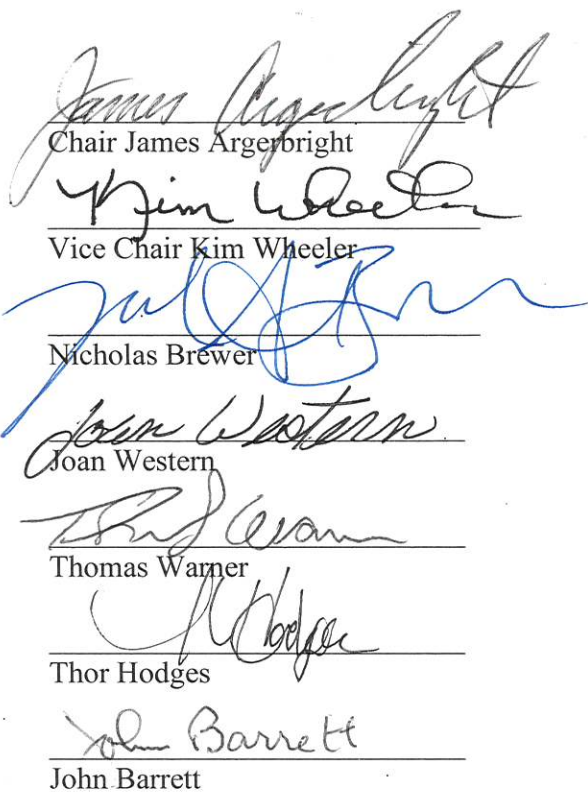 James Argerbright
Chair James Argerbright
Kim Wheeler
Vice Chair Kim Wheeler
Nicholas Brewer
Joan Western
Joan Western
Thomas Warner
Hodges
Thor Hodges
John Barrett
John Barrett